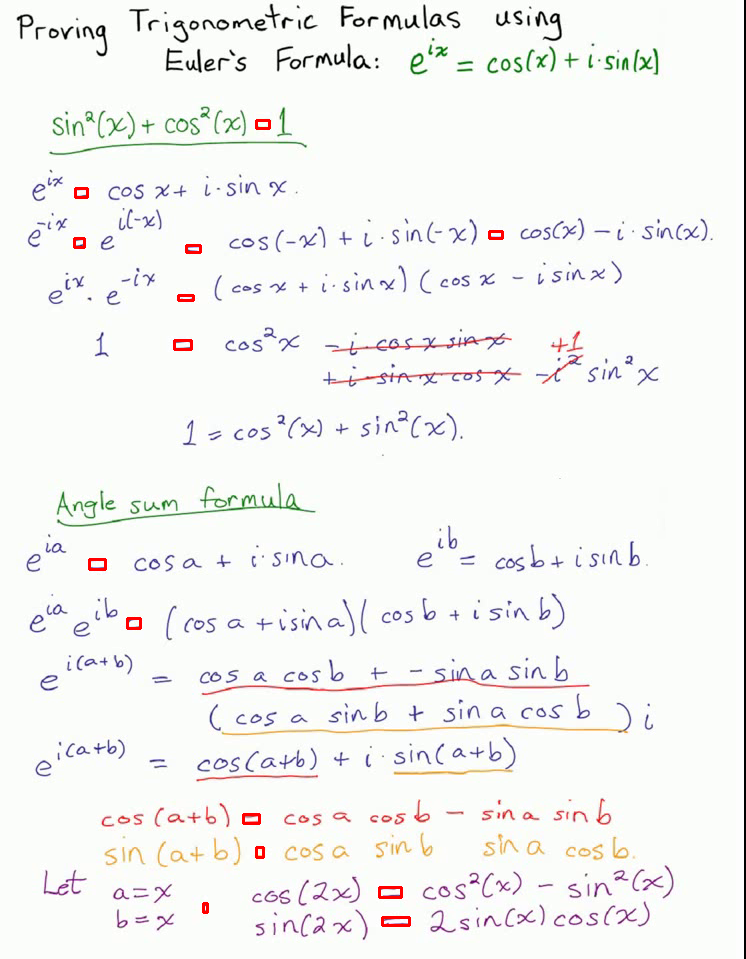 Proving Trigonometric Formulas using
Euler's Formula: e^{ix} = cos(x) + i·sin(x)
sin²(x) + cos²(x) 1
e^{ix} cos x + i·sin x.
e^{-ix} e^{i(-x)} cos(-x) + i·sin(-x) cos(x) - i·sin(x).
e^{ix} · e^{-ix} (cos x + i·sin x)(cos x - i sin x)
1 cos²x - i·cos x sin x +1
+ i·sin x cos x - i² sin²x
1 = cos²(x) + sin²(x).
Angle sum formula
e^{ia} cos a + i·sin a. e^{ib} = cos b + i sin b.
e^{ia} e^{ib} (cos a + i sin a)(cos b + i sin b)
e^{i(a+b)} = cos a cos b + - sin a sin b
(cos a sin b + sin a cos b) i
e^{i(a+b)} = cos(a+b) + i·sin(a+b)
cos(a+b) cos a cos b - sin a sin b
sin(a+b) cos a sin b sin a cos b.
Let a=x cos(2x) cos²(x) - sin²(x)
b=x sin(2x) 2sin(x)cos(x)